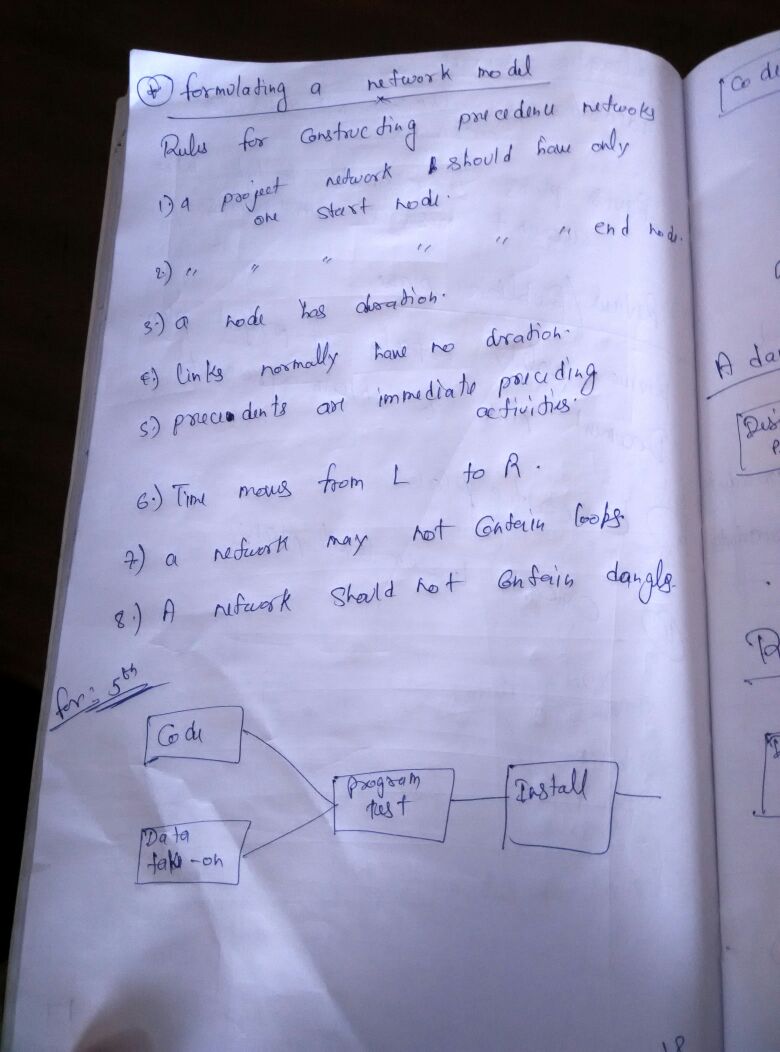 formulating a network model
Rules for constructing precedence networks
1) a project network should have only
one start node.
2.) " " " " " " end node.
3.) a node has duration.
4.) links normally have no dration.
5.) precedents are immediate preceding
activities.
6.) Time moves from L to R.
7) a network may not contain loops.
8.) A network should not contain dangles.
for:- 5th
Code
Data
take-on
program
test
Install
Code
A dan
Des
18